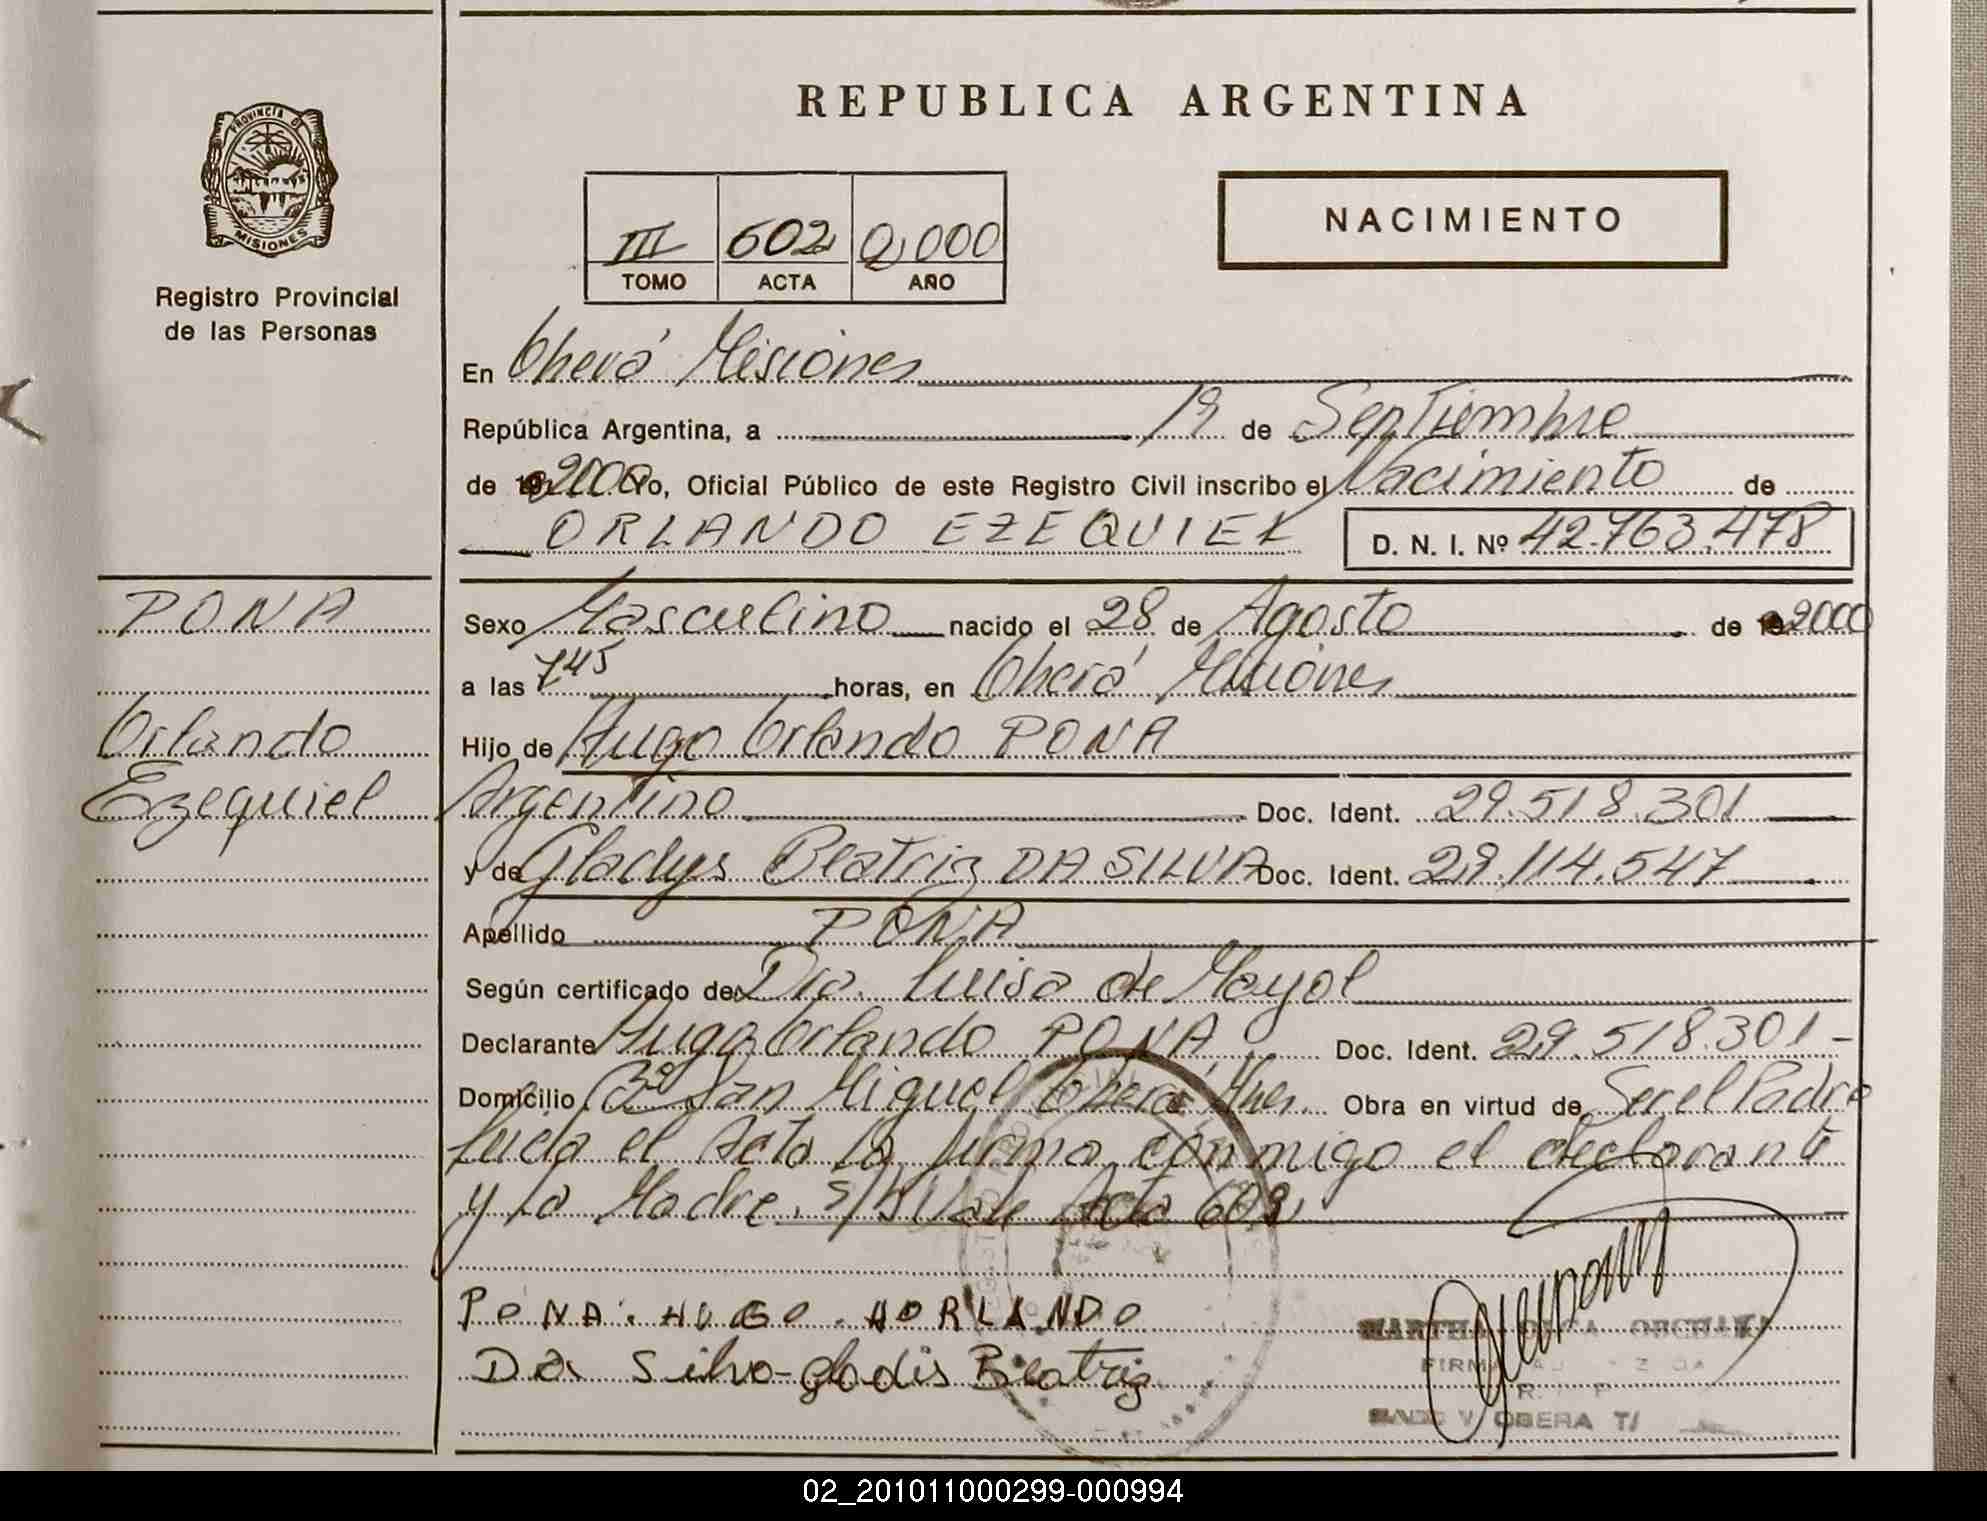 REPUBLICA ARGENTINA
PROVINCIA DE
MISIONES
Registro Provincial
de las Personas
III 602 2,000
TOMO ACTA AÑO
NACIMIENTO
En Oberá Misiones
República Argentina, a 19 de Septiembre
de 2000 Yo, Oficial Público de este Registro Civil inscribo el Nacimiento de
ORLANDO EZEQUIEL D. N. I. Nº 42.763.478
PONA
Orlando
Ezequiel
Sexo Masculino nacido el 28 de Agosto de 2000
a las 7,45 horas, en Oberá Misiones
Hijo de Hugo Orlando PONA
Argentino Doc. Ident. 29.518.301
y de Gladys Beatriz DA SILVA Doc. Ident. 29.114.547
Apellido PONA
Según certificado de Dra. Luisa de Mayol
Declarante Hugo Orlando PONA Doc. Ident. 29.518.301-
Domicilio Bº San Miguel Oberá Mnes. Obra en virtud de Ser el Padre
Leída el Acta la firma conmigo el declarante
y la Madre. S/B/Vale Acta 602
PONA. HUGO. HORLANDO
Da Silva-gladis Beatriz
MARTHA
OBERA
02_201011000299-000994